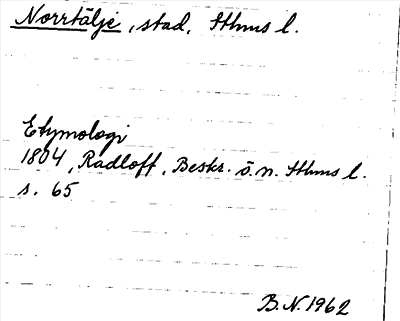 Norrtälje, stad, Sthms l.
Etymologi
1804, Radloff, Beskr. ö. n. Sthms l.
s. 65
B.N. 1962